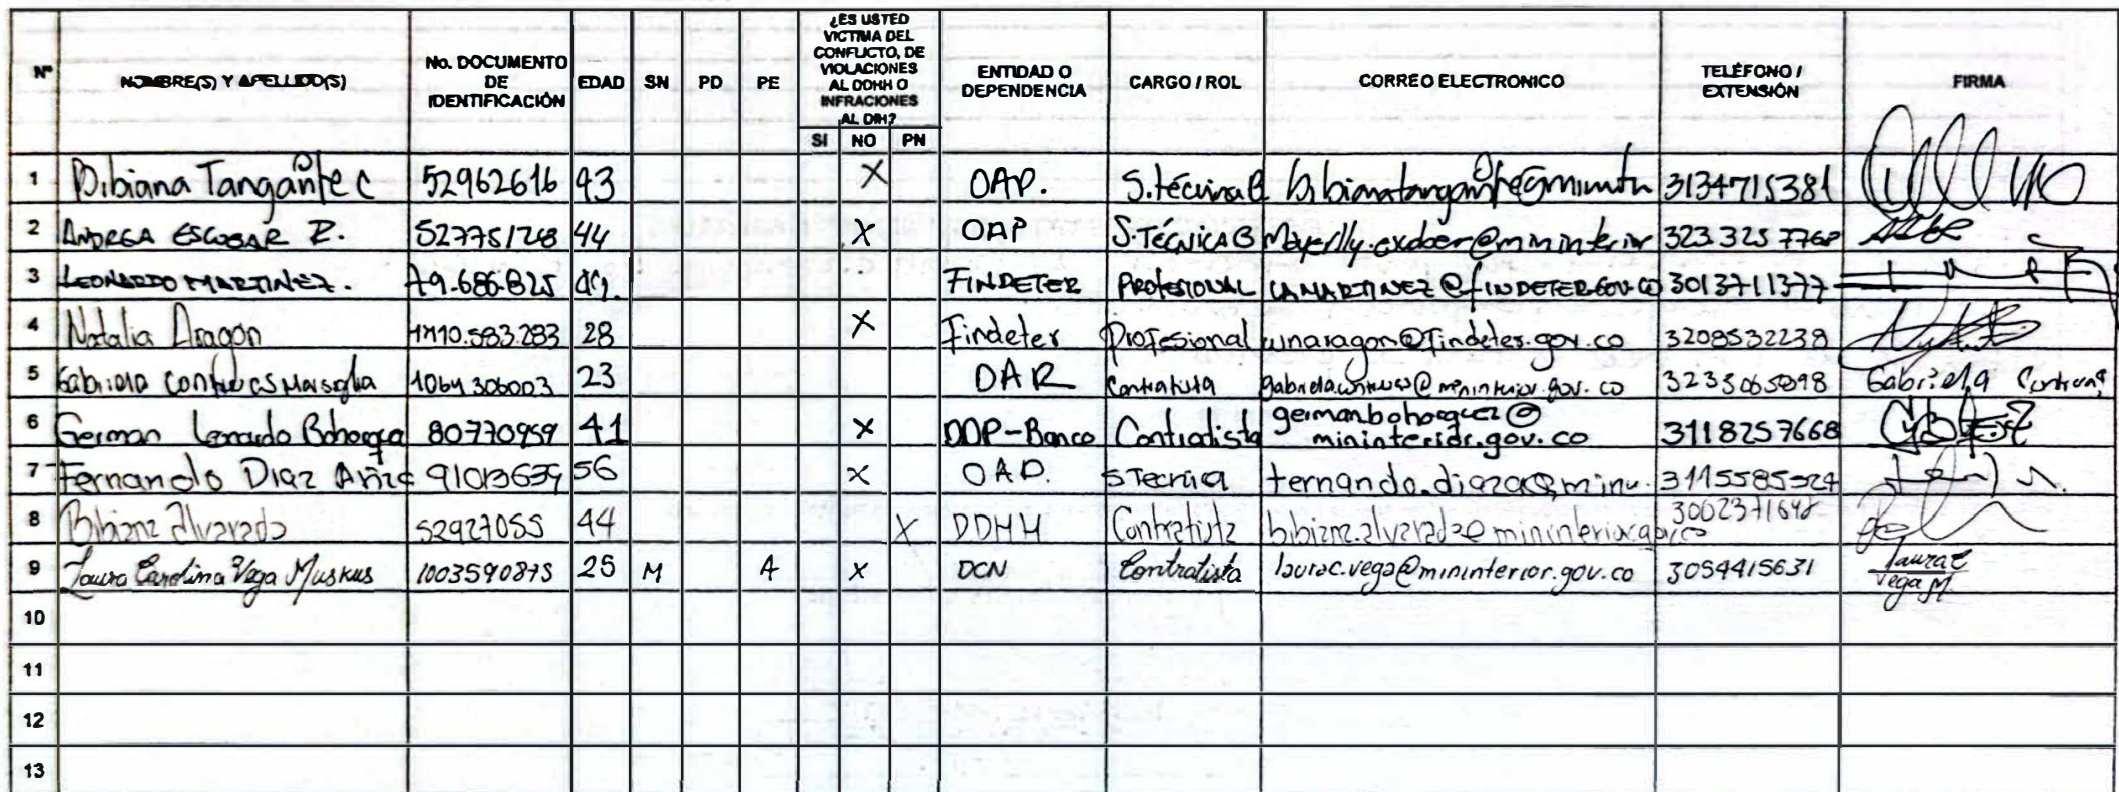 Nº NOMBRE(S) Y APELLIDO(S) No. DOCUMENTO DE IDENTIFICACIÓN EDAD SN PD PE ¿ES USTED VICTIMA DEL CONFLICTO, DE VIOLACIONES AL DDHH O INFRACIONES AL DIH? SI NO PN ENTIDAD O DEPENDENCIA CARGO / ROL CORREO ELECTRONICO TELÉFONO / EXTENSIÓN FIRMA
1 Bibiana Tangarife C 52962616 43 X OAP. S.técnica 3134715381
2 ANDREA ESCOBAR R. 44 X OAP S.TÉCNICA 323 325 7768
3 LEONARDO MARTINEZ. 79.686.825 FINDETER PROFESIONAL LAMARTINEZ@FINDETER.GOV.CO 3013711377
4 Natalia Aragon 28 X Findeter Profesional @findeter.gov.co 3208532238
5 Gabriela 1064306003 23 Contratista @mininterior.gov.co Gabriela
6 German Leonardo Bohorquez 80770959 41 X Contratista germanbohorquez@
mininterior.gov.co 3118257668
7 Fernando Diaz 56 X STecnica fernando.diaza@
8 Bibiana Alvarado 52927055 44 X DDHH Contratista bibiana.alvarado@mininterior.gov.co
9 Laura Carolina Vega Muskus 1003590875 25 M A X DCN Contratista laurac.vega@mininterior.gov.co 3054415631 Laura C
Vega M.
10
11
12
13